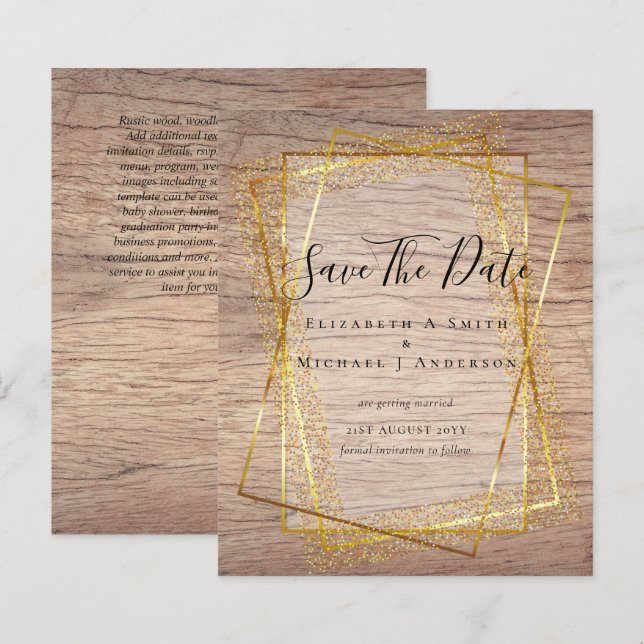 Rustic wood, woodla
Add additional tex
invitation details, rsvp,
menu, program, we
images including so
template can be used
baby shower, birtha
graduation party in
business promotions,
conditions and more.
service to assist you in
item for you
Save The Date
Elizabeth A Smith
&
Michael J Anderson
are getting married
21ST AUGUST 20YY
formal invitation to follow